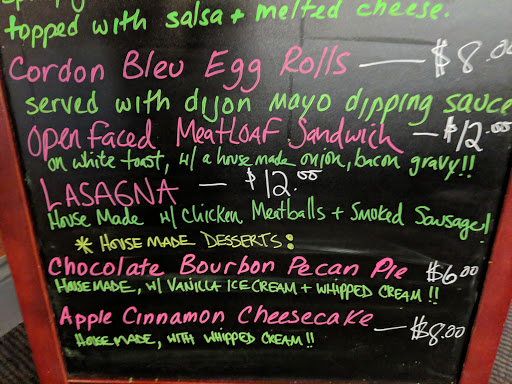 topped with salsa + melted cheese.
Cordon Bleu Egg Rolls — $8.00
served with dijon mayo dipping sauce
Open faced Meatloaf Sandwich — $12.00
on white toast, w/ a house made onion, bacon gravy!!
LASAGNA — $12.00
House Made w/ Chicken Meatballs + Smoked Sausage!
* HOUSE MADE DESSERTS:
Chocolate Bourbon Pecan Pie $6.00
HOUSEMADE, W/ VANILLA ICE CREAM + WHIPPED CREAM !!
Apple Cinnamon Cheesecake — $8.00
HOUSE MADE, WITH WHIPPED CREAM !!